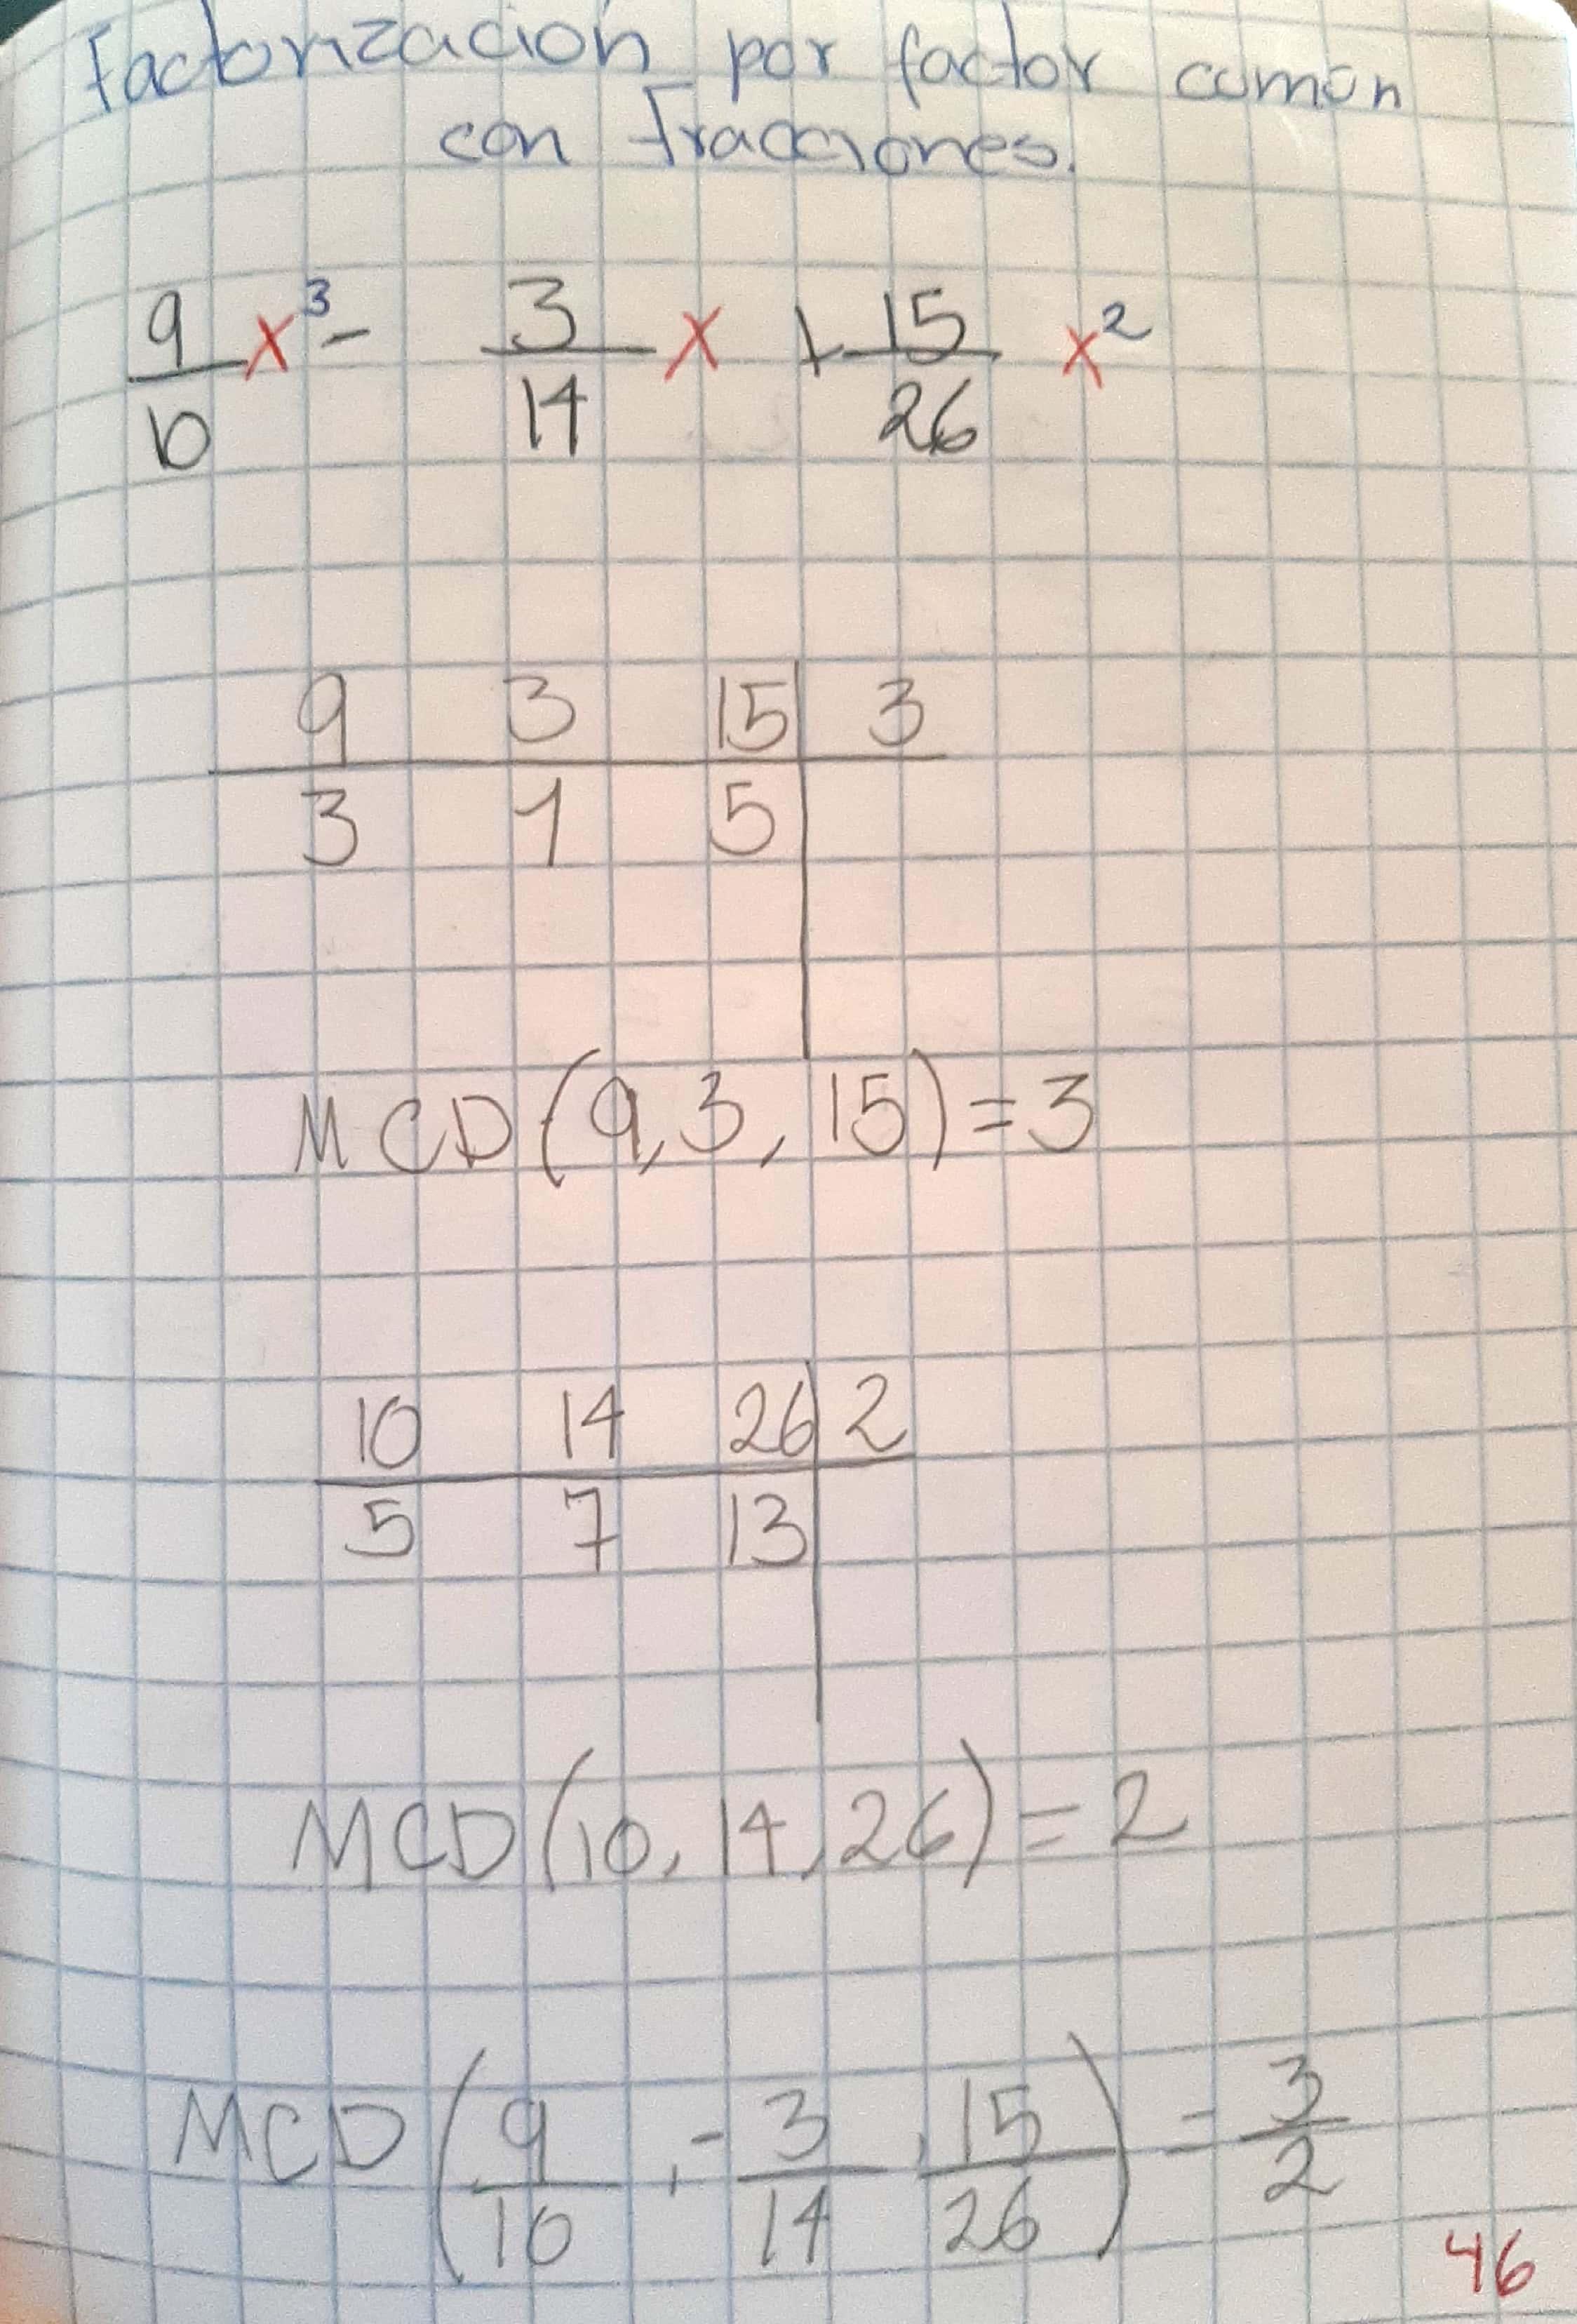 Factorización por factor común
con Fracciones.
9/10 x³ - 3/14 x + 15/26 x²
9 3 15 | 3
3 1 5
MCD(9,3,15)=3
10 14 26 | 2
5 7 13
MCD(10,14,26)=2
MCD(9/10, -3/14, 15/26) = 3/2
46